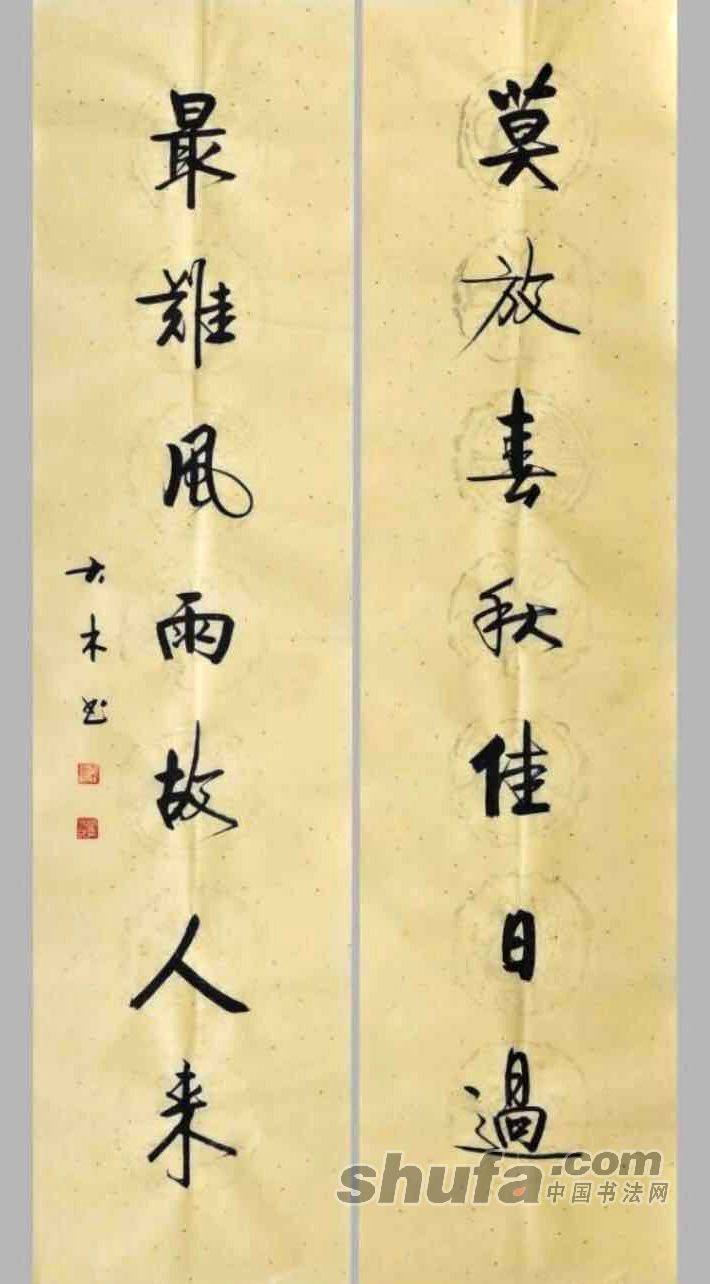 莫放春秋佳日過
最難風雨故人来
大木书
shufa.com
中国书法网